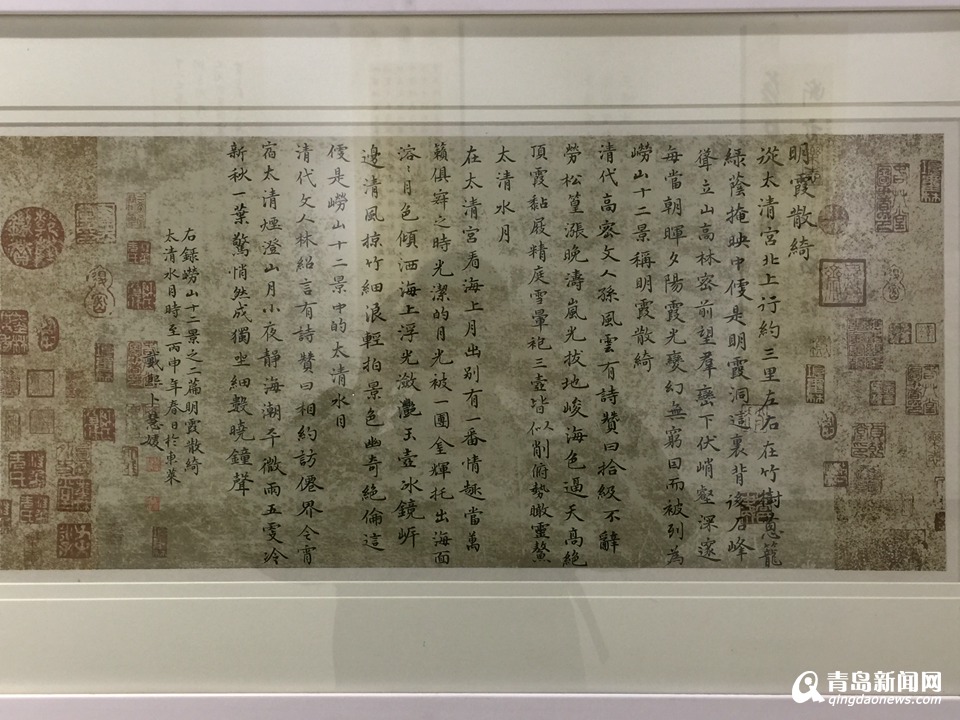 明霞散綺
從太清宮北上行約三里左右在竹樹蔥籠
綠蔭掩映中便是明霞洞這裏背後石峰
聳立山高林密前望羣巒下伏峭壑深邃
每當朝暉夕陽霞光變幻無窮因而被列為
嶗山十二景稱明霞散綺
清代高密文人孫風雲有詩贊曰拾級不辭
勞松篁漲晚濤嵐光拔地峻海色逼天高絕
頂霞黏屐精庭雪暈袍三壺皆似人削俯勢瞰靈鰲
太清水月
在太清宮看海上月出别有一番情趣當萬
籟俱寂之時光潔的月光被一團金輝托出海面
溶〻月色傾洒海上浮光瀲灩玉壺冰鏡岸
邊清風掠竹細浪輕拍景色幽奇絕倫這
便是嶗山十二景中的太清水月
清代文人林紹言有詩贊曰相約訪僊界今宵
宿太清煙澄山月小夜静海潮平微雨五更冷
新秋一葉驚悄然成獨坐細數曉鐘聲
右錄嶗山十二景之二篇明霞散綺
太清水月時至丙申年春日於東萊
戴熙卜慧媛
青岛新闻网
qingdaonews.com